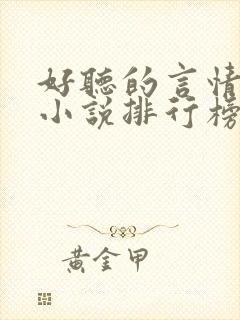 好聽的言情
小說排行榜
黃金甲